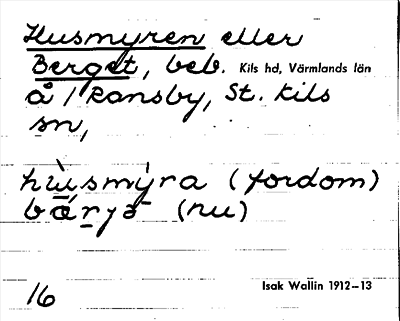 Husmyren eller
Berget, beb. Kils hd, Värmlands län
å / Ransby, St. Kils
sn,
hùsmỳra (fordom)
(nu)
Isak Wallin 1912–13
16